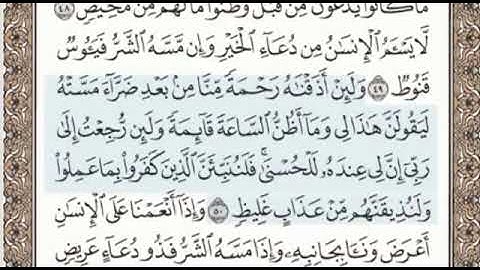 مَا كَانُوا۟ يَدْعُونَ مِن قَبْلُ وَظَنُّوا۟ مَا لَهُم مِّن مَّحِيصٍ ٤٨
لَّا يَسْـَٔمُ ٱلْإِنسَـٰنُ مِن دُعَآءِ ٱلْخَيْرِ وَإِن مَّسَّهُ ٱلشَّرُّ فَيَـُٔوسٌ
قَنُوطٌ ٤٩ وَلَئِنْ أَذَقْنَـٰهُ رَحْمَةً مِّنَّا مِنۢ بَعْدِ ضَرَّآءَ مَسَّتْهُ
لَيَقُولَنَّ هَـٰذَا لِى وَمَآ أَظُنُّ ٱلسَّاعَةَ قَآئِمَةً وَلَئِن رُّجِعْتُ إِلَىٰ
رَبِّىٓ إِنَّ لِى عِندَهُۥ لَلْحُسْنَىٰ ۚ فَلَنُنَبِّئَنَّ ٱلَّذِينَ كَفَرُوا۟ بِمَا عَمِلُوا۟
وَلَنُذِيقَنَّهُم مِّنْ عَذَابٍ غَلِيظٍ ٥٠ وَإِذَآ أَنْعَمْنَا عَلَى ٱلْإِنسَـٰنِ
أَعْرَضَ وَنَـَٔا بِجَانِبِهِۦ وَإِذَا مَسَّهُ ٱلشَّرُّ فَذُو دُعَآءٍ عَرِيضٍ